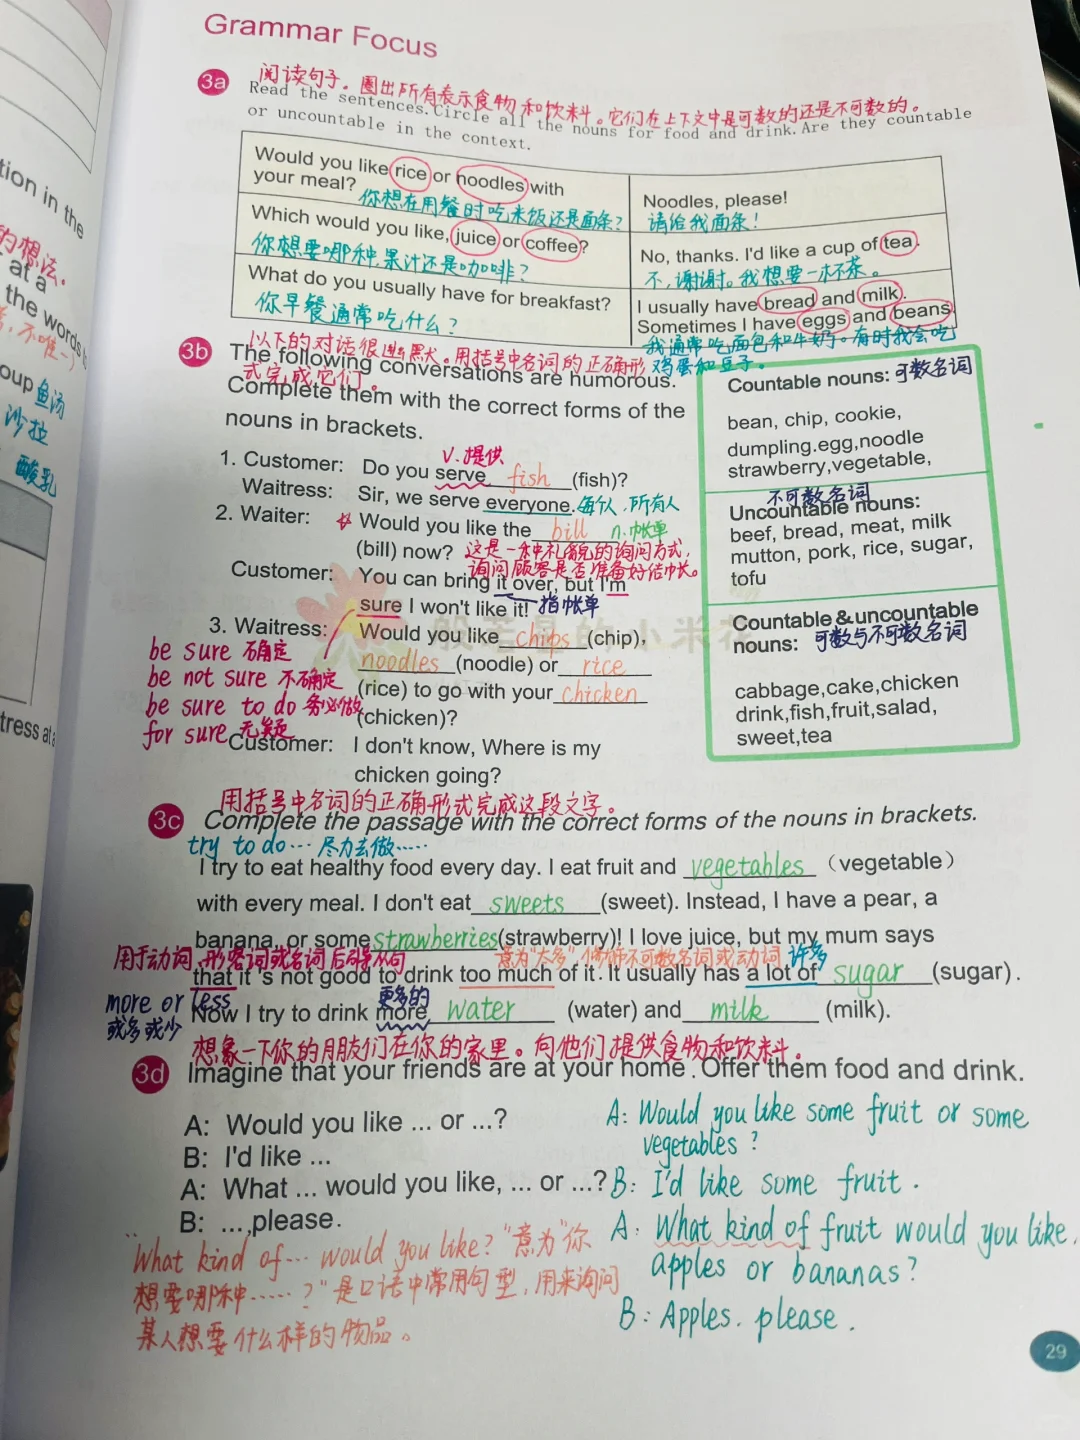 Grammar Focus
阅读句子。圈出所有表示食物和饮料。它们在上下文中是可数的还是不可数的。
3a Read the sentences.Circle all the nouns for food and drink.Are they countable
or uncountable in the context.
Would you like rice or noodles with
your meal? 你想在用餐时吃米饭还是面条?
Noodles, please!
请给我面条!
Which would you like, juice or coffee?
你想要哪种,果汁还是咖啡?
No, thanks. I'd like a cup of tea.
不,谢谢。我想要一杯茶。
What do you usually have for breakfast?
你早餐通常吃什么?
I usually have bread and milk.
Sometimes I have eggs and beans
我通常吃面包和牛奶。有时我会吃
鸡蛋和豆子。
以下的对话很幽默。用括号中名词的正确形
3b The following conversations are humorous.
式完成它们。
Complete them with the correct forms of the
nouns in brackets.
v.提供
1. Customer: Do you serve fish (fish)?
Waitress: Sir, we serve everyone. 每个人,所有人
2. Waiter: Would you like the bill n.帐单
(bill) now? 这是一种礼貌的询问方式,
询问顾客是否准备好结帐。
Customer: You can bring it over, but I'm
sure I won't like it! 指帐单
3. Waitress: Would you like chips (chip),
noodles (noodle) or rice
(rice) to go with your chicken
(chicken)?
Customer: I don't know, Where is my
chicken going?
be sure 确定
be not sure 不确定
be sure to do 务必做
for sure 无疑
Countable nouns: 可数名词
bean, chip, cookie,
dumpling.egg,noodle
strawberry,vegetable,
不可数名词
Uncountable nouns:
beef, bread, meat, milk
mutton, pork, rice, sugar,
tofu
Countable &uncountable
nouns: 可数与不可数名词
cabbage,cake,chicken
drink,fish,fruit,salad,
sweet,tea
用括号中名词的正确形式完成这段文字。
3c Complete the passage with the correct forms of the nouns in brackets.
try to do… 尽力去做……
I try to eat healthy food every day. I eat fruit and vegetables (vegetable)
with every meal. I don't eat sweets (sweet). Instead, I have a pear, a
banana, or some strawberries (strawberry)! I love juice, but my mum says
用于动词、形容词或名词后引导从句 意为"太多"修饰不可数名词或动词 许多
that it's not good to drink too much of it. It usually has a lot of sugar (sugar).
more or less 更多的
或多或少
Now I try to drink more water (water) and milk (milk).
想象一下你的朋友们在你的家里。向他们提供食物和饮料。
3d Imagine that your friends are at your home. Offer them food and drink.
A: Would you like ... or ...?
B: I'd like ...
A: What ... would you like, ... or ...?
B: ...,please.
A: Would you like some fruit or some
vegetables?
B: I'd like some fruit.
A: What kind of fruit would you like,
apples or bananas?
B: Apples, please.
"What kind of… would you like?"意为"你
想要哪种……?"是口语中常用句型,用来询问
某人想要什么样的物品。
29
tion in the
的想法.
at a
the words
oup 鱼汤
沙拉
酸乳
tress at a
般若星的小米花